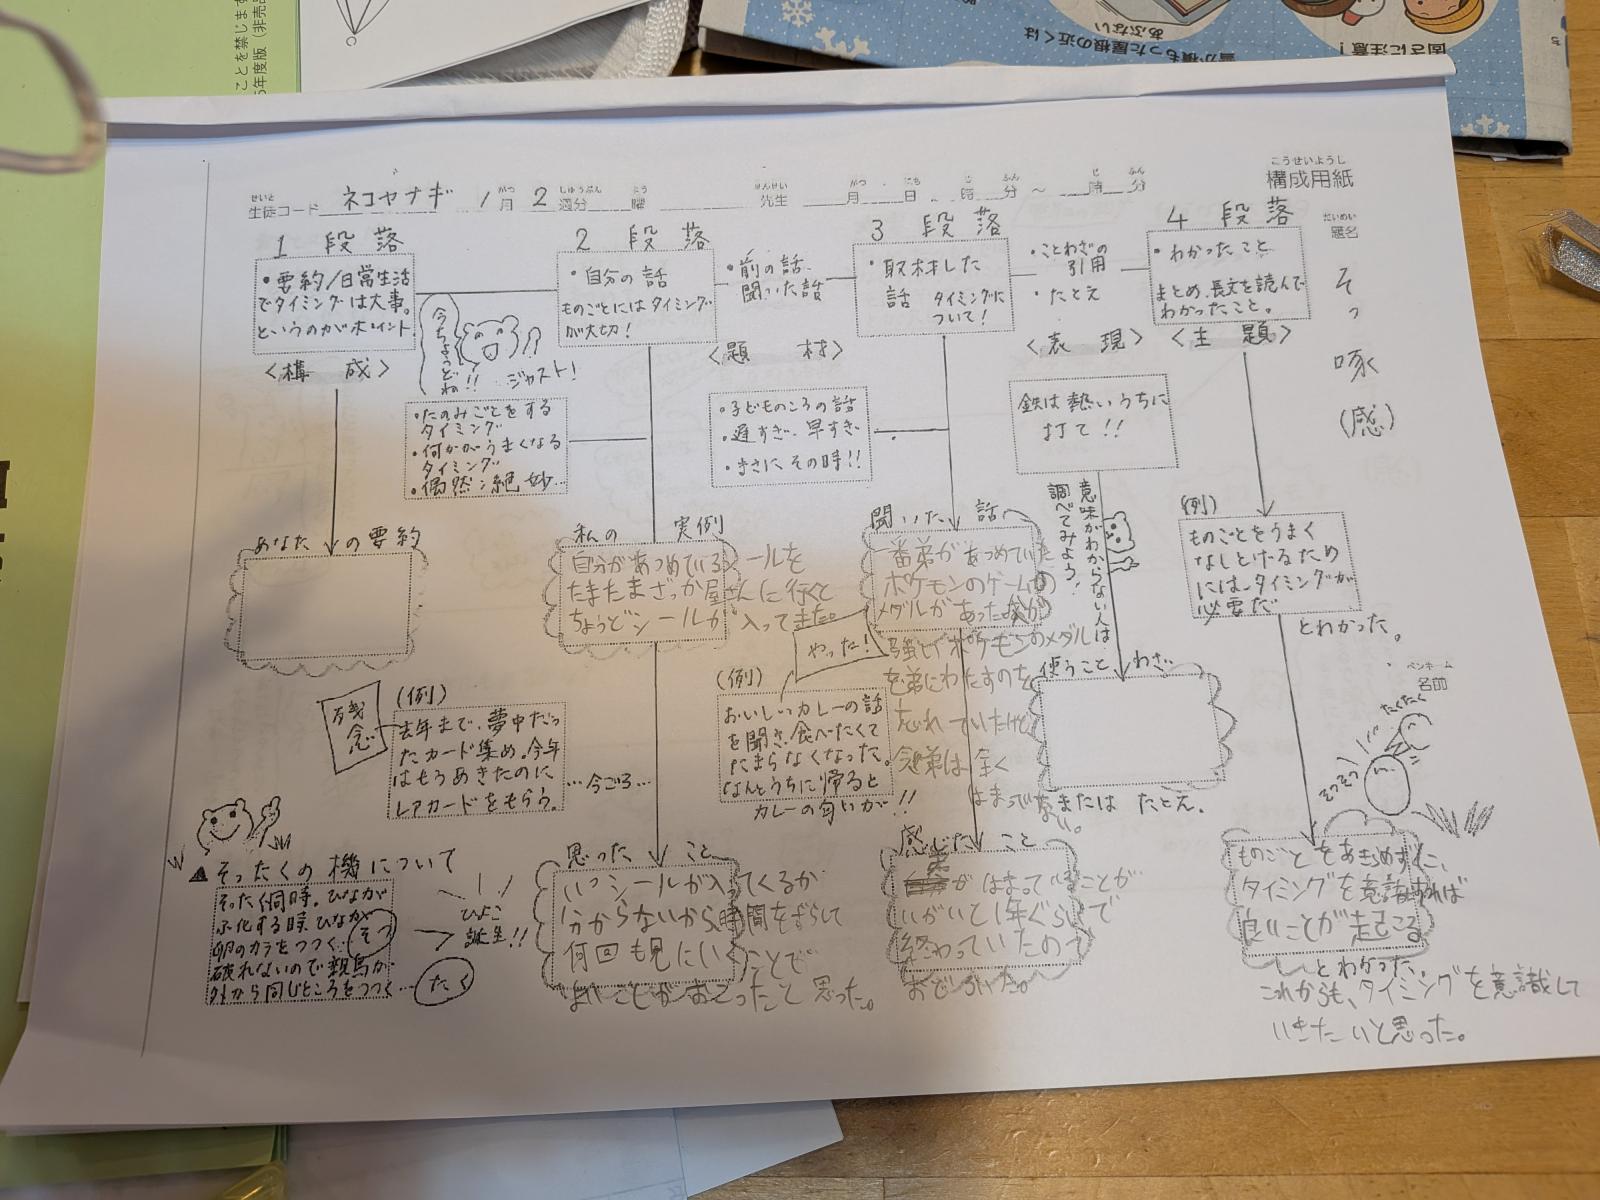 ことを禁じます
5年度版（非売品
雪が積もった屋根の近くは
あぶない
固さに注意！
こうせいようし
構成用紙
せいと
生徒コード ネコヤナギ 1月 2週分 曜 先生 月 日 時 分 ～ 時 分
がつ しゅうぶん よう せんせい がつ にち じ ふん じ ふん
だいめい
題名
そっ
啄
(感)
ペンネーム
名前
1 段落
・要約/日常生活
でタイミングは大事。
というのがポイント
<構 成>
今ちょうどね!!
ジャスト!
2 段落
・自分の話
ものごとにはタイミング
が大切!
・前の話、
聞いた話
<題 材>
3 段落
・取材した
話 タイミングに
ついて!
・ことわざの
引用
・たとえ
<表 現>
4 段落
・わかったこと
まとめ、長文を読んで
わかったこと。
<主 題>
・たのみごとをする
タイミング
・何かがうまくなる
タイミング
・偶然：絶妙…
・子どものころの話
・遅すぎ、早すぎ
・まさにその時!!
鉄は熱いうちに
打て!!
意味がわからない人は
調べてみよう!
(例)
ものごとをうまく
なしとげるため
には、タイミングが
必要だ
とわかった。
あなたの要約
私の 実例
自分があつめているシールを
たまたまざっか屋さんに行くと
ちょうどシールが入ってきた。
聞いた 話
一番弟があつめていた
ポケモンのゲームの
メダルがあった
ポケモンのメダル
を弟にわたすのを
忘れていたけど
今弟は全く
はまってない。
やった!
使うことわざ
またはたとえ.
残念
(例)
去年まで、夢中だっ
たカード集め。今年
はもうあきたのに
レアカードをもらう。
…今ごろ…
(例)
おいしいカレーの話
を聞き、食べたくて
たまらなくなった。
なんとうちに帰ると
カレーの匂いが!!
たくたく
そつそつ
▲そったくの機について
そったく同時。ひなが
ふ化する時ひなが
卵のカラをつつく…そつ
破れないので親鳥が
外から同じところをつつく…たく
ひよこ
誕生!!
思った こと
いつシールが入ってくるか
分からないから時間をずらして
何回も見にいくことで
よいことがおこったと思った。
感じた こと
がはまっていることが
いがいと1年ぐらいで
終わっていたので
おどろいた。
ものごとをあきらめずに、
タイミングを意識すれば
良いことが起こる
とわかった。
これからも、タイミングを意識して
いきたいと思った。